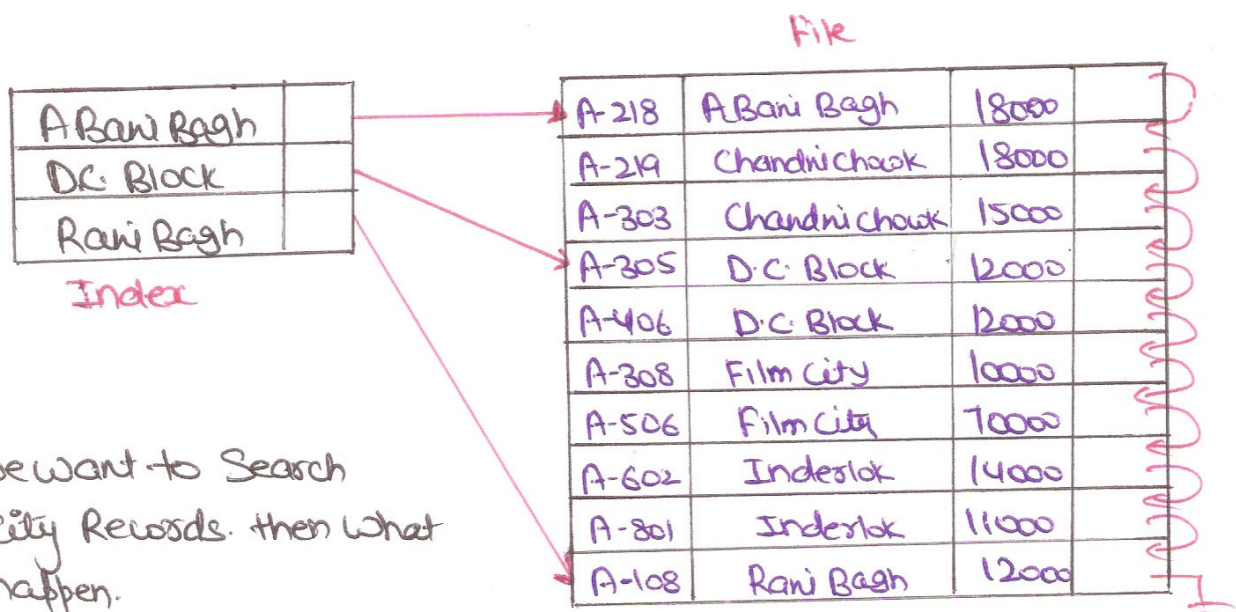 File
A Bani Bagh
D.C. Block
Rani Bagh
Index
A-218 A Bani Bagh 18000
A-219 Chandni Chowk 18000
A-303 Chandni Chowk 15000
A-305 D.C. Block 12000
A-406 D.C. Block 12000
A-308 Film City 10000
A-506 Film City 70000
A-602 Inderlok 14000
A-801 Inderlok 11000
A-108 Rani Bagh 12000
want to Search
City Records. then what
happen.